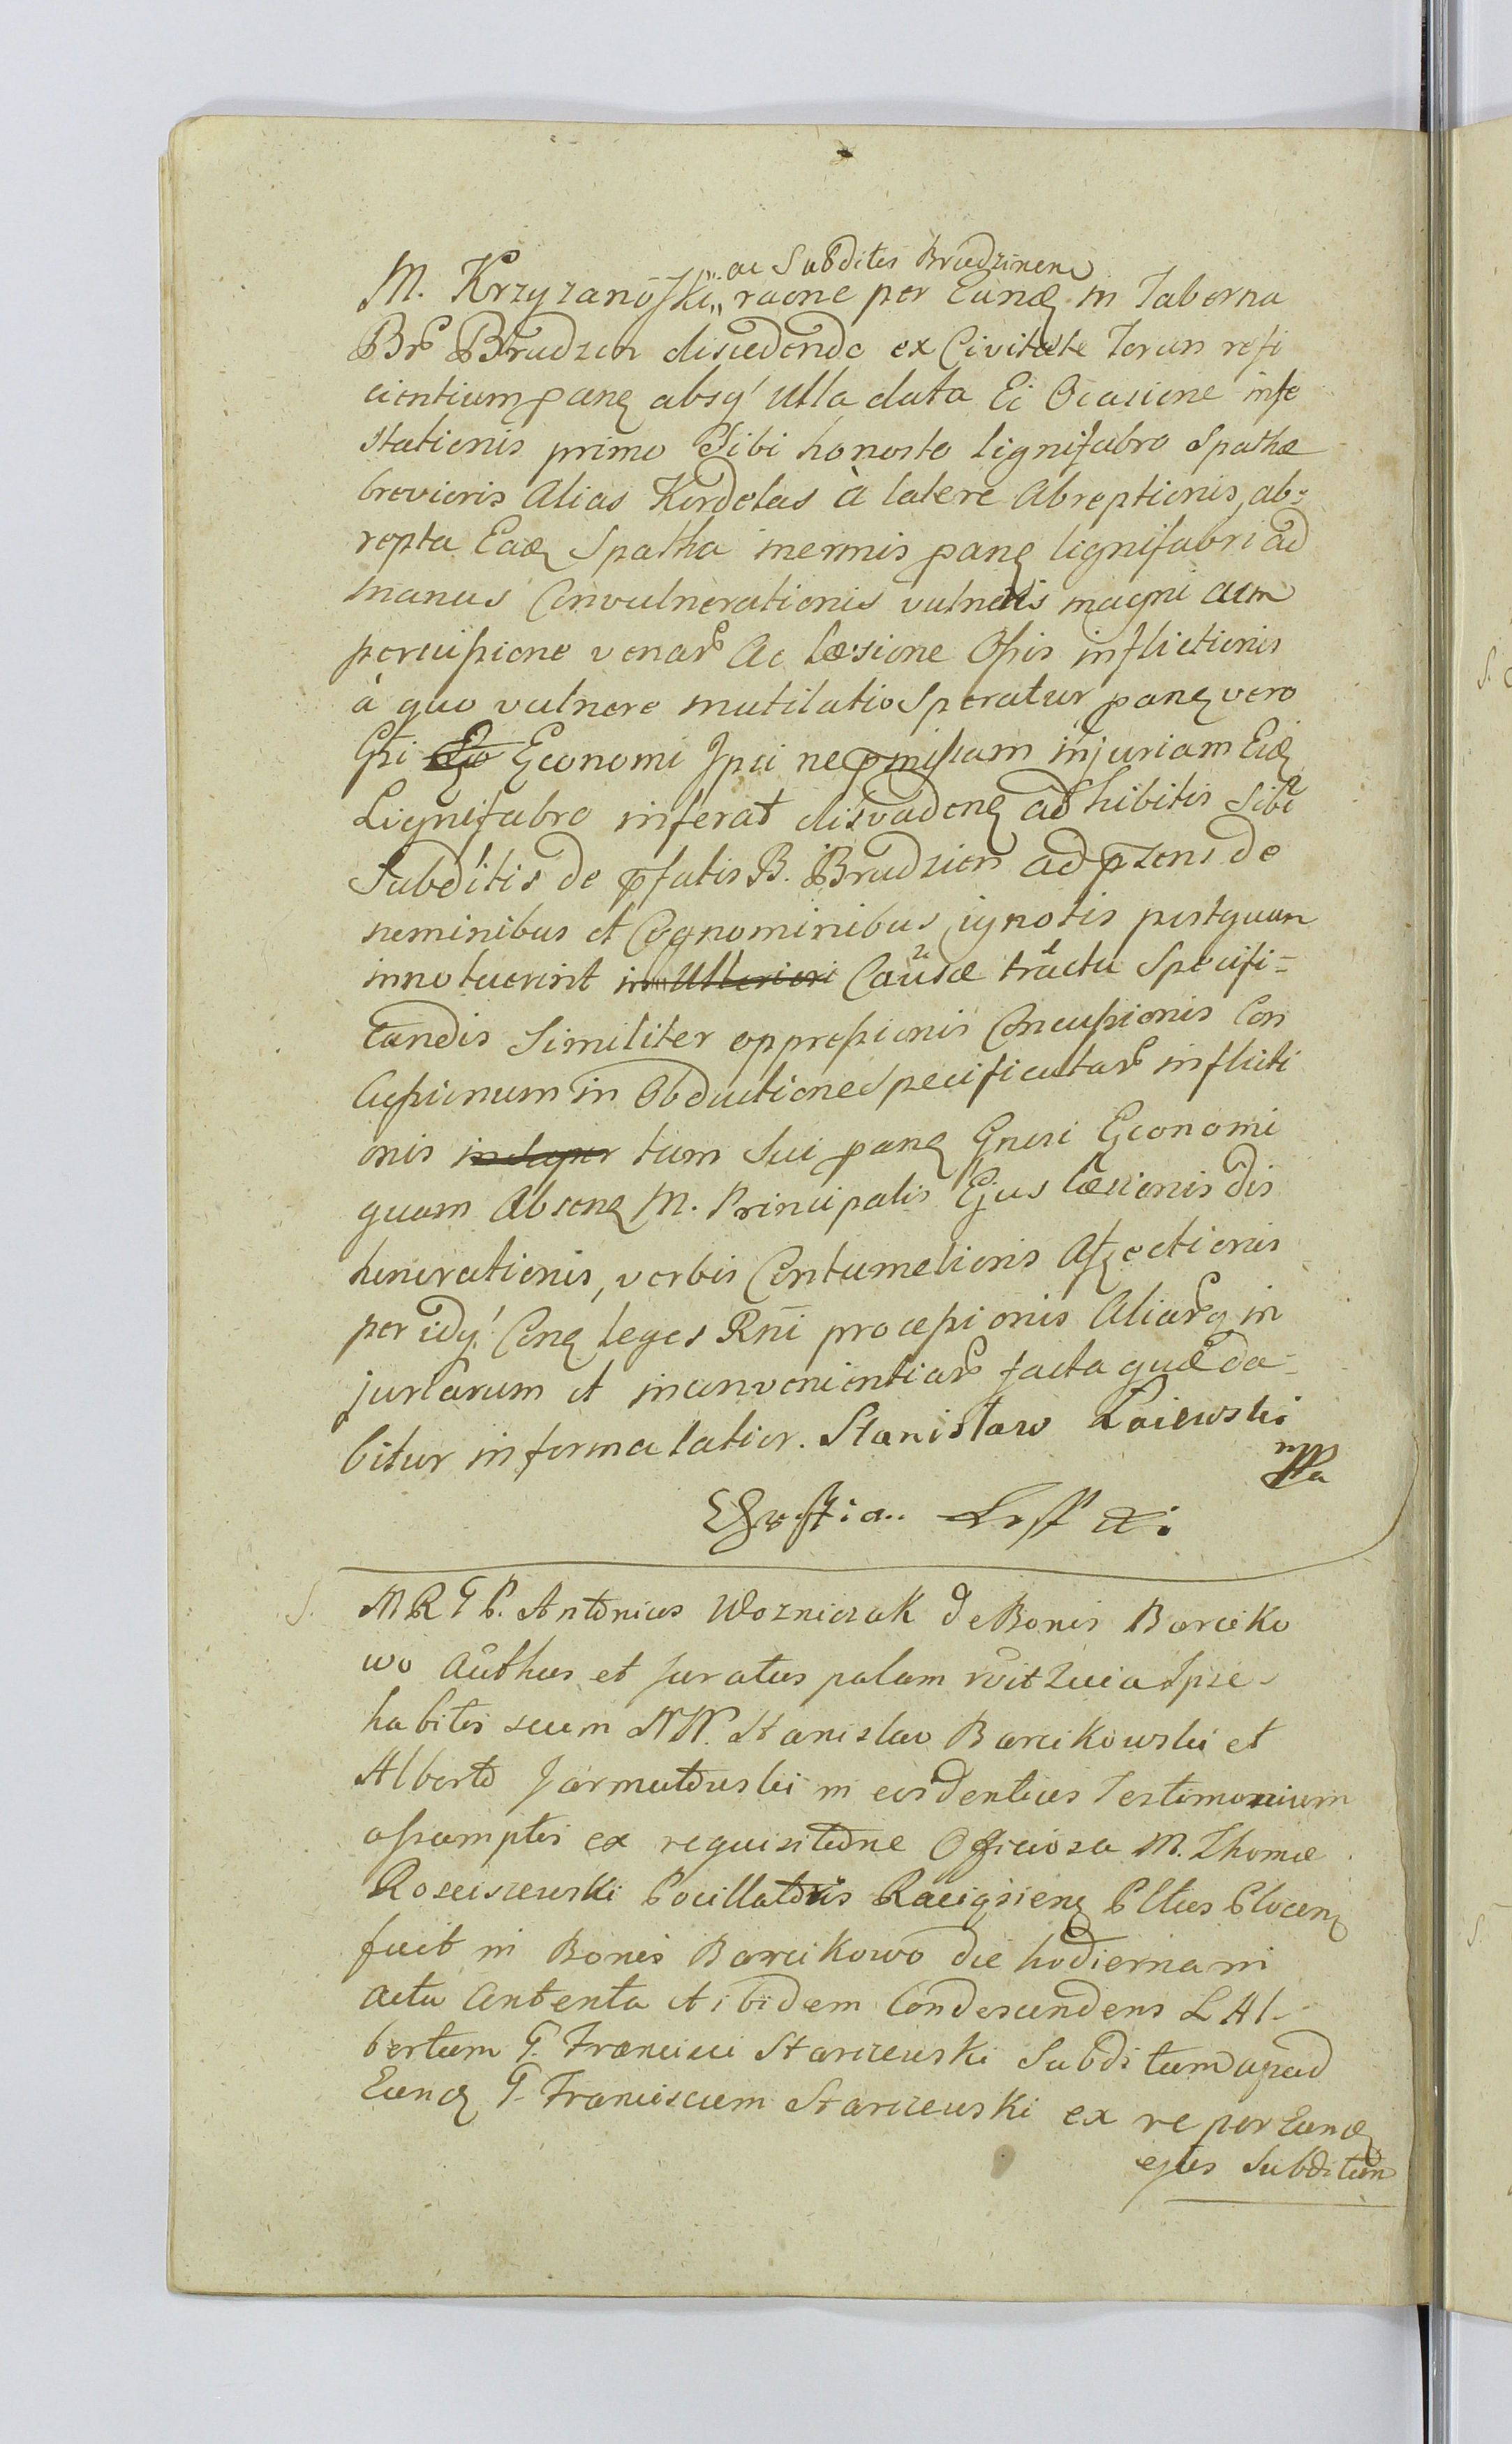 ac Subditis Brudzinen
M. Krzyzanoski raōne per Eund in Taberna
Br Brudzen discedendo ex Civitate Torun refi
cientium panē absq' ulla data Ei Ocasione infe
stationis primo Sibi honesto lignifabro Spathæ
brevioris Alias Kordelas à latere Abreptionis, ab=
repta Ead Spatha inermis panē lignifabri ad
manus Convulnerationis vulneris magni cum
percussione venar Ac læsione Ossis inflictionis
à quo vulnere mutilatio Speratur panē vero
Gsi Economi Ipsi ne pmissam injuriam Eid
Lignifabro inferat disvadenē adhibitis Sibi
Subditis de pfatis B. Brudzen ad pzens de
nominibus et Cognominibus ignotis postquam
innotuerint in Ulteriori Causæ tractu Specifi=
candis Similiter oppressionis Concussionis Con
Cussionum in Obductione Specificatar inflicti
onis insuper tum Sui panē Gnosi Economi
quam Absenē M. Principalis Ejus læsionis dis
honorationis, verbis Contumeliosis Affectionis
per idq' Conē leges Rni processionis Aliarq in
juriarum et inconvenientiar facta quæ da=
bitur in forma latior. Stanisław Łaiewski
mpp
S. M R G P. Antonius Wozniczak de Bonis Barciko
wo Authus et Juratus palam rvit Quia Ipse
habitis secum NN. Stanislao Barcikowski et
Alberto Jarmutowski in evidentius Testimonium
assumptis ex requisitione Officiosa M. Thomæ
Rosciszewski Pocillatoris Raciąsienē Pltus Plocenē
fuit in Bonis Barcikowo die hodierna in
actu Contento et ibidem Condescendens L Al-
bertum G. Francisci Starczewski Subditum apud
Eund G. Franciscum Starczewski ex re per Eund
ejus Subditum